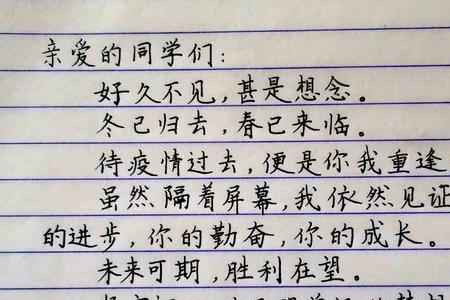 亲爱的同学们：
好久不见，甚是想念。
冬已归去，春已来临。
待疫情过去，便是你我重逢
虽然隔着屏幕，我依然见证
的进步，你的勤奋，你的成长。
未来可期，胜利在望。